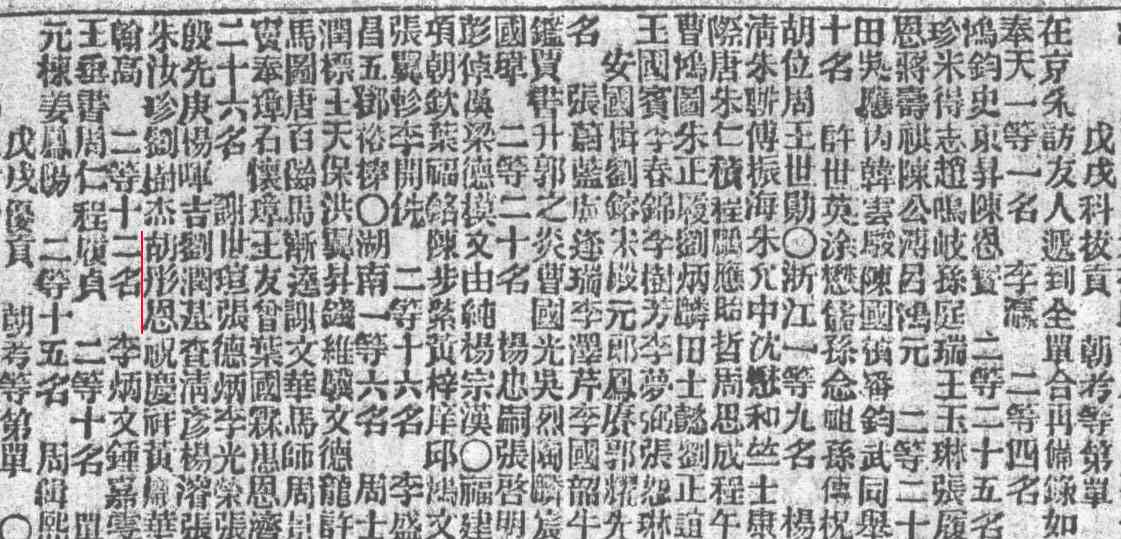 戊戌科拔貢　朝考等第單
在京采訪友人遞到全單合再備錄如
奉天一等一名　李瀛　二等四名
鴻鈞史東昇陳恩寶　二等二十五名
珍米得志趙鳴岐孫庭瑞王玉琳張履
恩蔣壽祺陳公溥呂鴻元　二等二十
田應丙韓雲殿陳國禎審鈞武同舉
十名　許世英涂懋儲孫念祖孫傳棁
胡位周王世勛〇浙江一等九名　楊
淸朱聯傅振海朱允中沈懋和竺士康
際唐朱仁積程鵬應貽哲周思成程午
曹鴻圖朱正履劉炳麟田士懿劉正誼
王國賓李春錦李樹芳李夢弼張恕琳
安國楫劉鎔宋棪元郎鳳賡郭燿先
名　張蔚藍盧逢瑞李澤芹李國韶牛
鑑賈書升郭之炎曹國光吳烈陶麟宸
國瑋　二等二十名　楊忠嗣張啓明
彭倬漢梁德模文由純楊宗漢〇福建
項朝欽葉福銘陳步紫黃梓庠邱鴻文
張翼軫李開銑　二等十六名　李盛
昌五鄧裕檡〇湖南一等六名　周士
潤標王天保洪翼昇錢維驥文德龍許
馬圖唐百齡馬漸逵謝文華馬師周
寶奉璋石懷璋王友曾葉國霖惠恩濟
二十六名　謝世瑄張德炳李光榮張
殷先庚楊暉吉劉潤基查淸彥楊濬張
朱汝珍劉樹杰胡彤恩祝慶祥黃慶華
翰高　二等十二名　李炳文鍾嘉
王垂書周仁程履貞　二等十名　單
元棟姜鳳陽　二等十五名　周緝熙
戊戌優貢　朝考等第單　〇